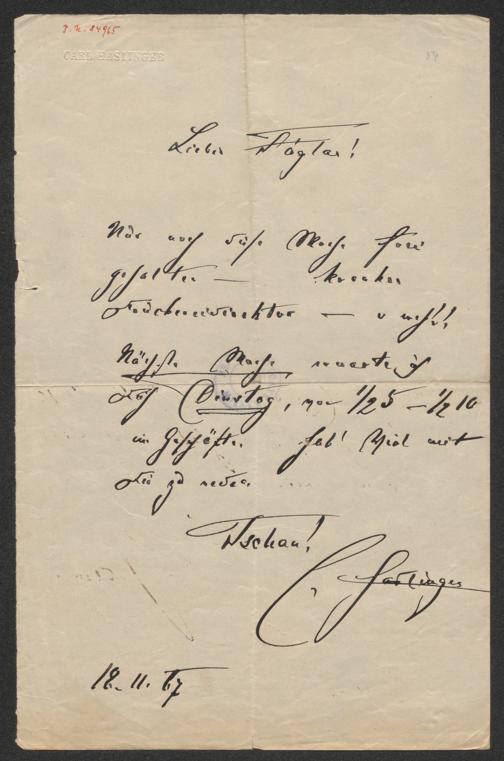 I. N. 84965
CARL HASLINGER
Lieber
Nur noch diese Woche
gehalten — kranker
Druckereidirektor —
Nächste Woche erwarte ich
Dich Dienstag, von 1/2 5 – 1/2 10
im Geschäfte. Hab' Viel mit
Dir zu reden
Tschau!
C. Haslinger
18. 11. 67